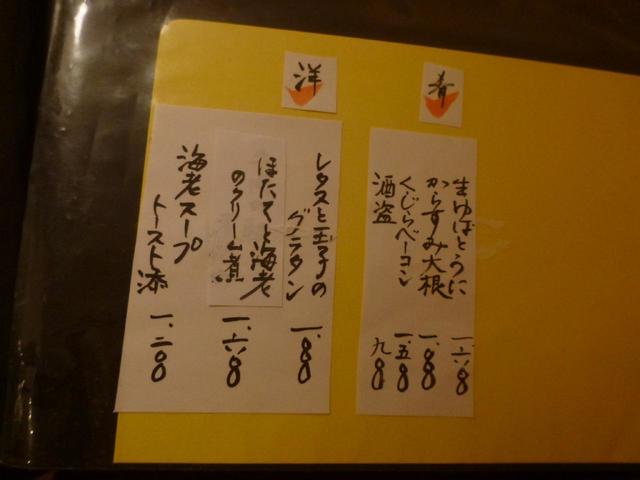 肴
生ゆばとうに 一.六〇〇
からすみ大根 一.〇〇〇
くじらベーコン 一.五〇〇
酒盗 九〇〇
洋
レタスと玉子の
グラタン 一.〇〇〇
ほたてと海老
のクリーム煮 一.六〇〇
海老スープ
トースト添 一.二〇〇